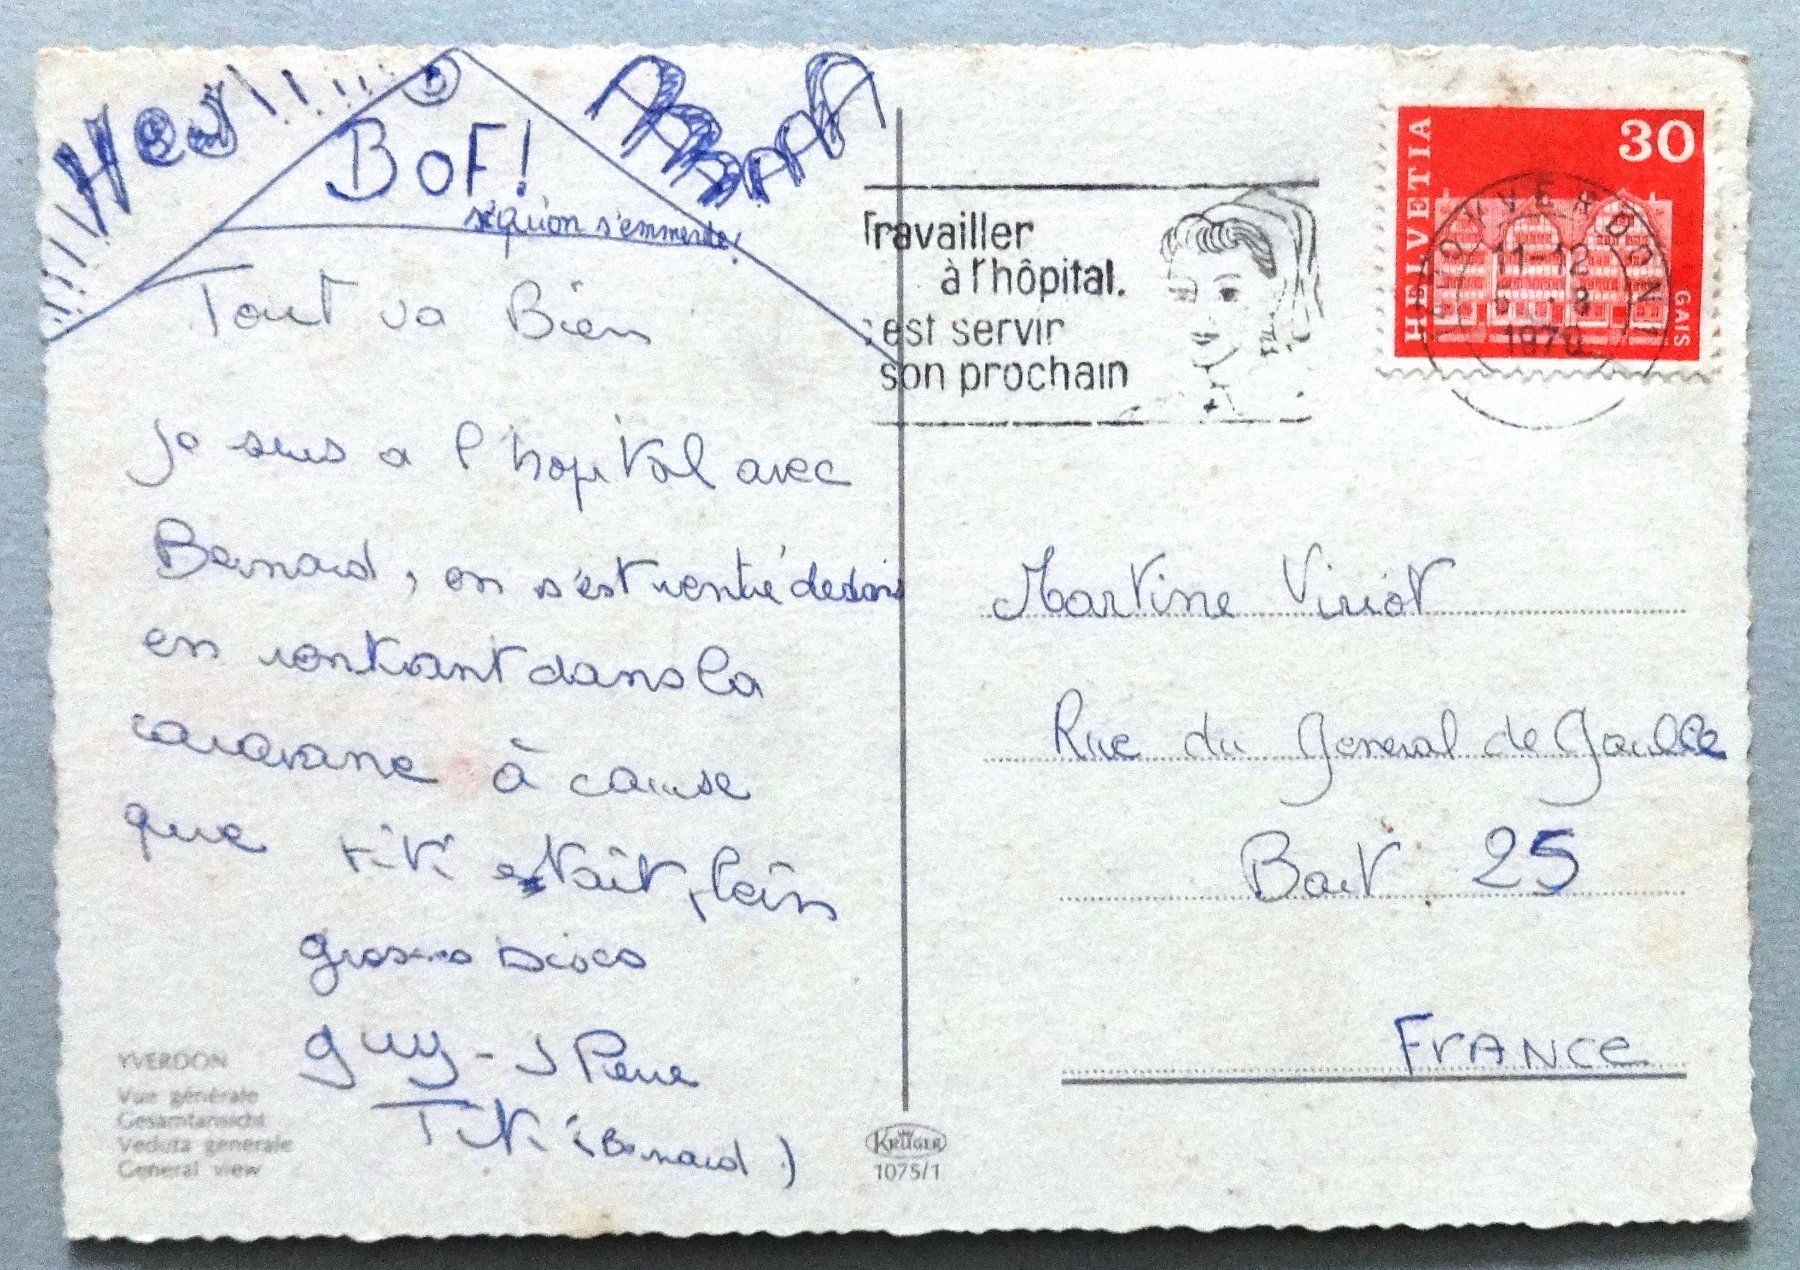 BOF!
s'qu'on s'emmerde!
Tout va Bien
Je suis a l'hopital avec
Bernard, on s'est rentré dedans
en rentrant dans la
caravane à cause
que titi etait plein
grosses bises
guy - J Pierre
Titi (Bernard)
YVERDON
Vue générale
Gesamtansicht
Veduta generale
General view
KRÜGER
1075/1
Travailler
à l'hôpital.
est servir
son prochain
HELVETIA
30
GAIS
YVERDON
11-12
1970
Martine Viriot
Rue du General de Gaulle
Bart 25
FRANCE